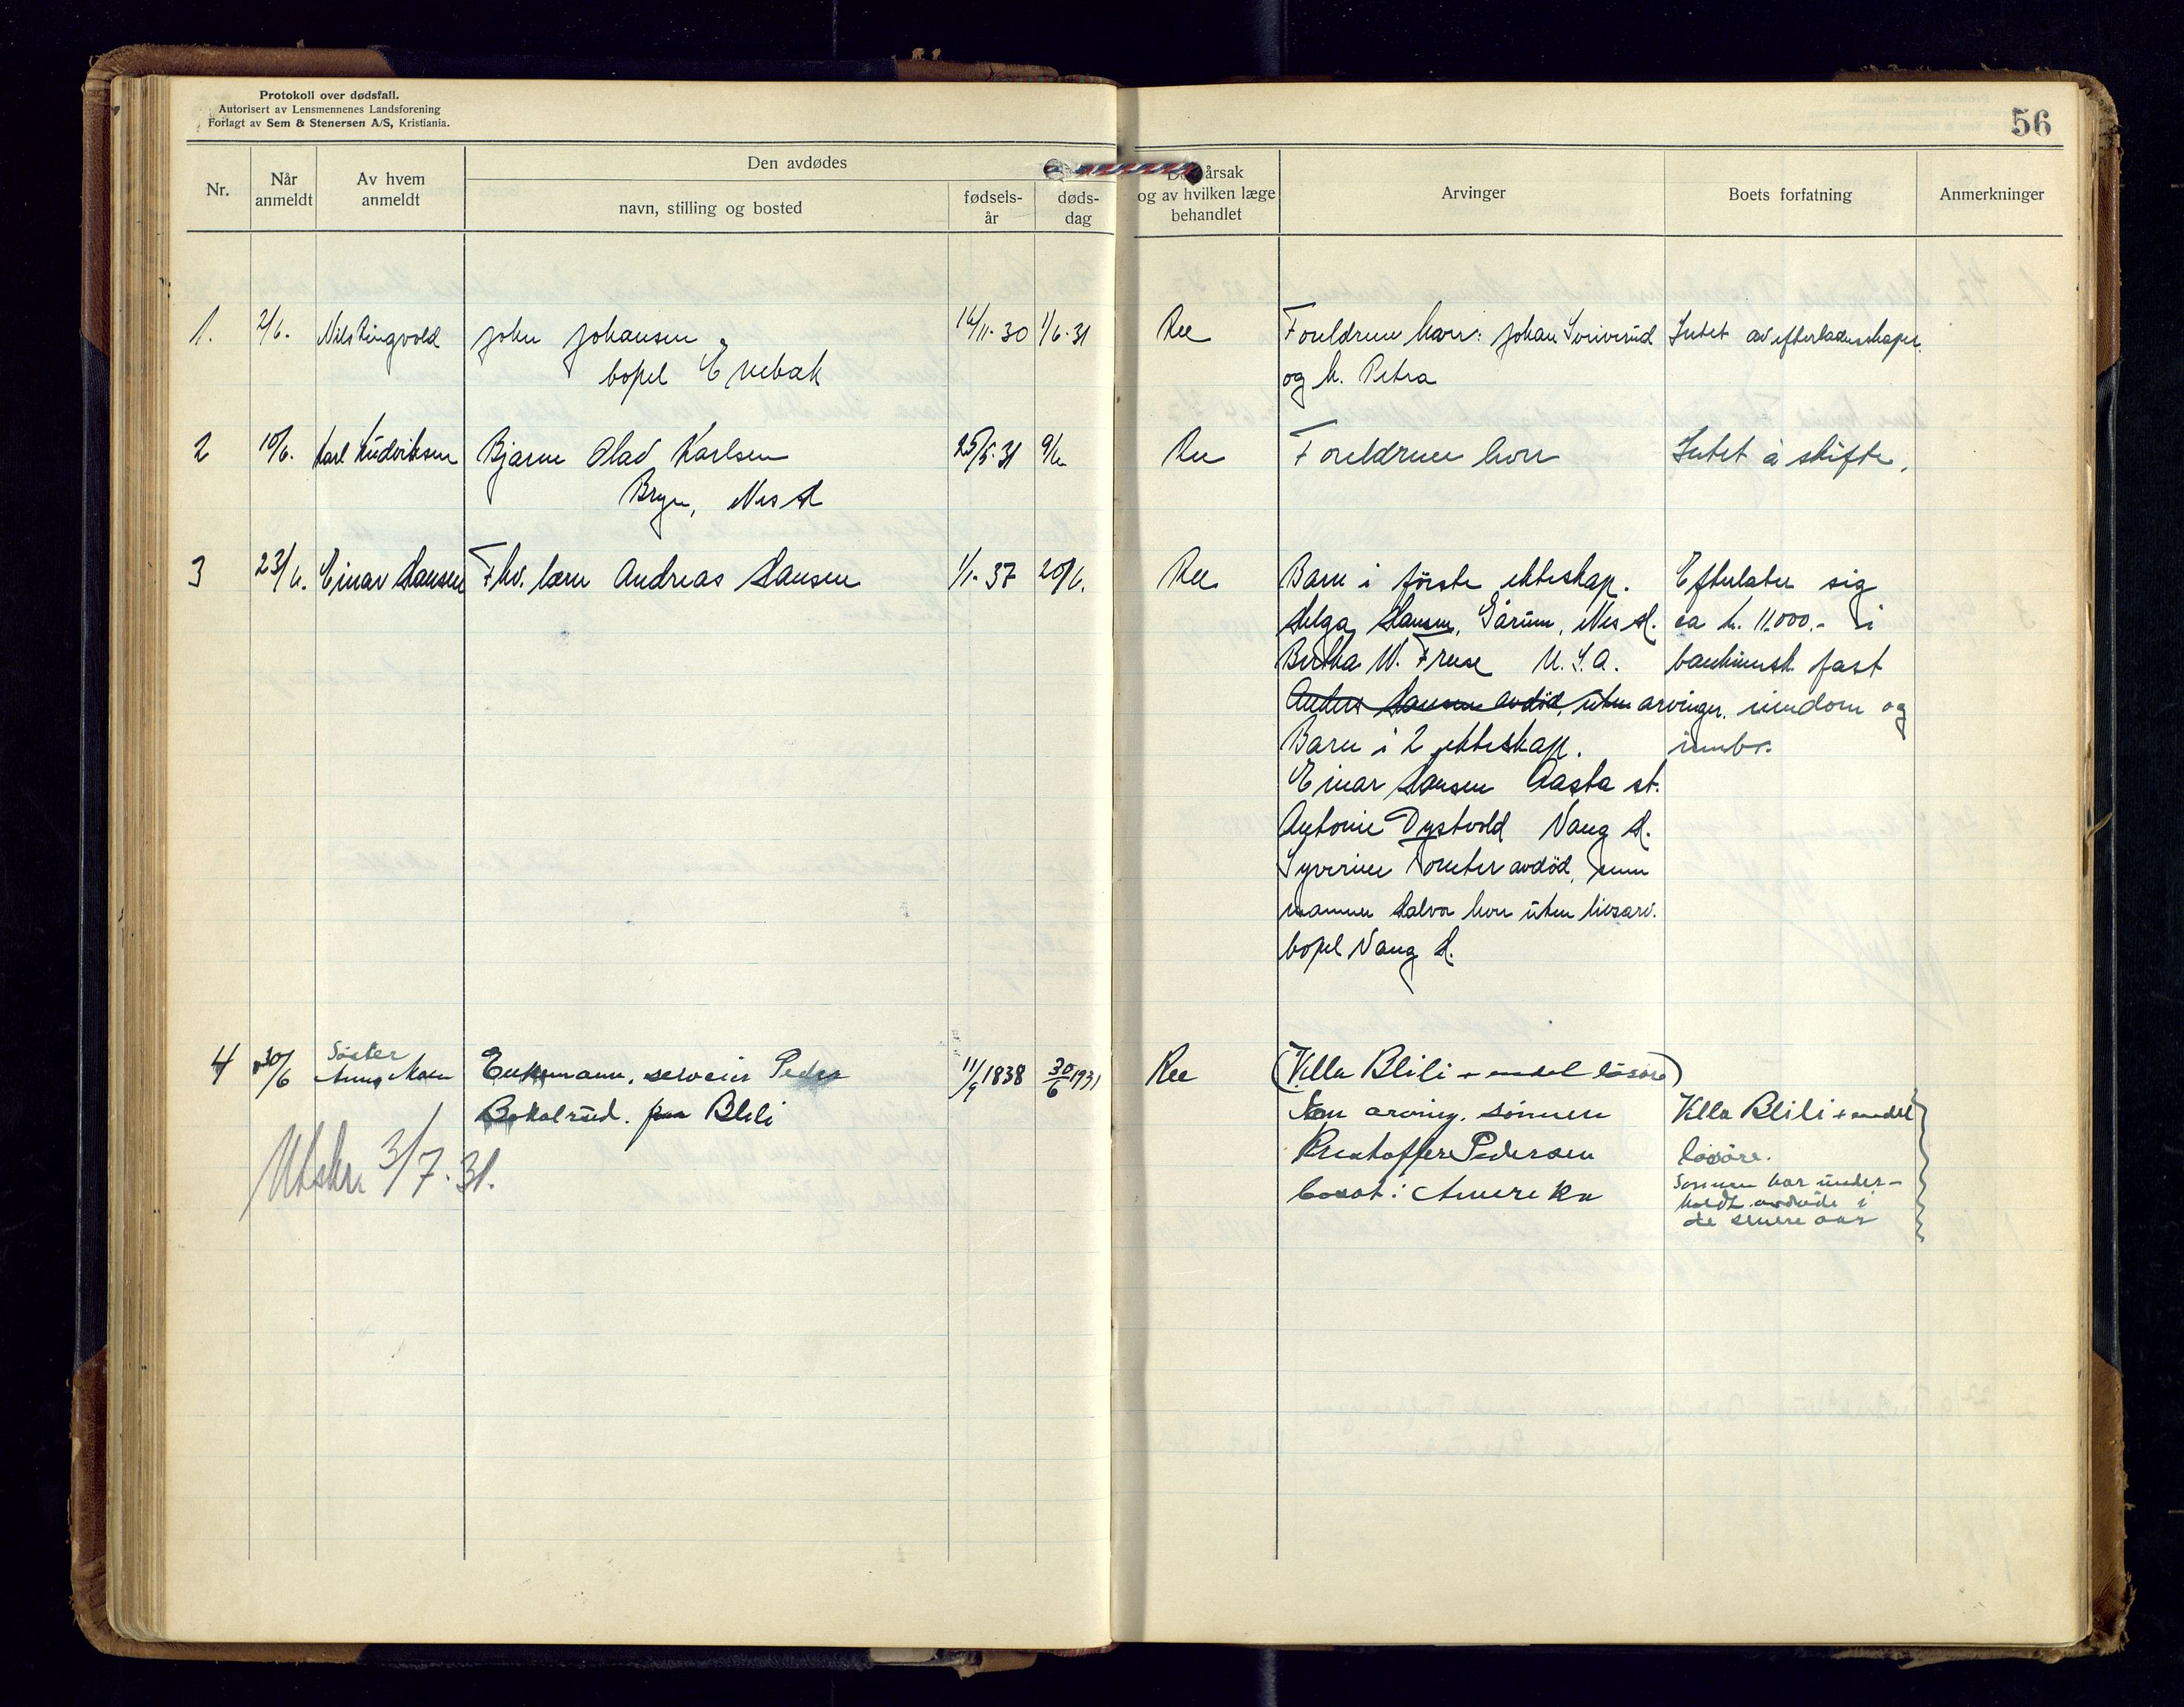 Protokoll over dødsfall.
Autorisert av Lensmennenes Landsforening
Forlagt av Sem & Stenersen A/S, Kristiania.
56
Nr.
Når anmeldt
Av hvem anmeldt
Den avdødes
navn, stilling og bosted
fødsels-år
døds-dag
årsak
og av hvilken læge
behandlet
Arvinger
Boets forfatning
Anmerkninger
1. 2/6. Nils Ringvold John Johansen 14/11-30 1/6-31 Ree Foreldrene herr: Johan Sviverud Intet av efterladenskaper.
bopel Enebak og h. Petra
2 10/6. Karl Ludviksen Bjarne Olav Karlsen 25/5-31 9/6 Ree Foreldrene herr Intet å skifte.
Bryn, Nes H
3 23/6. Einar Hansen Fhv. lærer Andreas Hansen 1/1-37 20/6. Ree Barn i første ekteskap. Efterlater sig
Helga Hansen, Gårum, Nes H. ca kr. 11,000.- i
Bertha W. Freese U.S.A. bankinnsk. fast
Anders Hansen avdød, uten arvinger. eiendom og
Barn i 2 ekteskap. innbo.
Einar Hansen Aasta st.
Antonie Dystvold Vang H.
Syverine avdød,
mannen Halvor herr uten livsarv.
bopel Vang H.
4 30/6 Søster Anna Moen Enkemann, selveier Peder 11/9 1838 30/6 1931 Ree (Villa Blili + endel løsøre)
Bekolrud. Blili Som arving, sønnen Villa Blili + endel
Kristoffer Pedersen løsøre.
bosat i Amerika Sønnen har under-
holdt avdøde i
de senere aar
Utskr. 3/7.31.